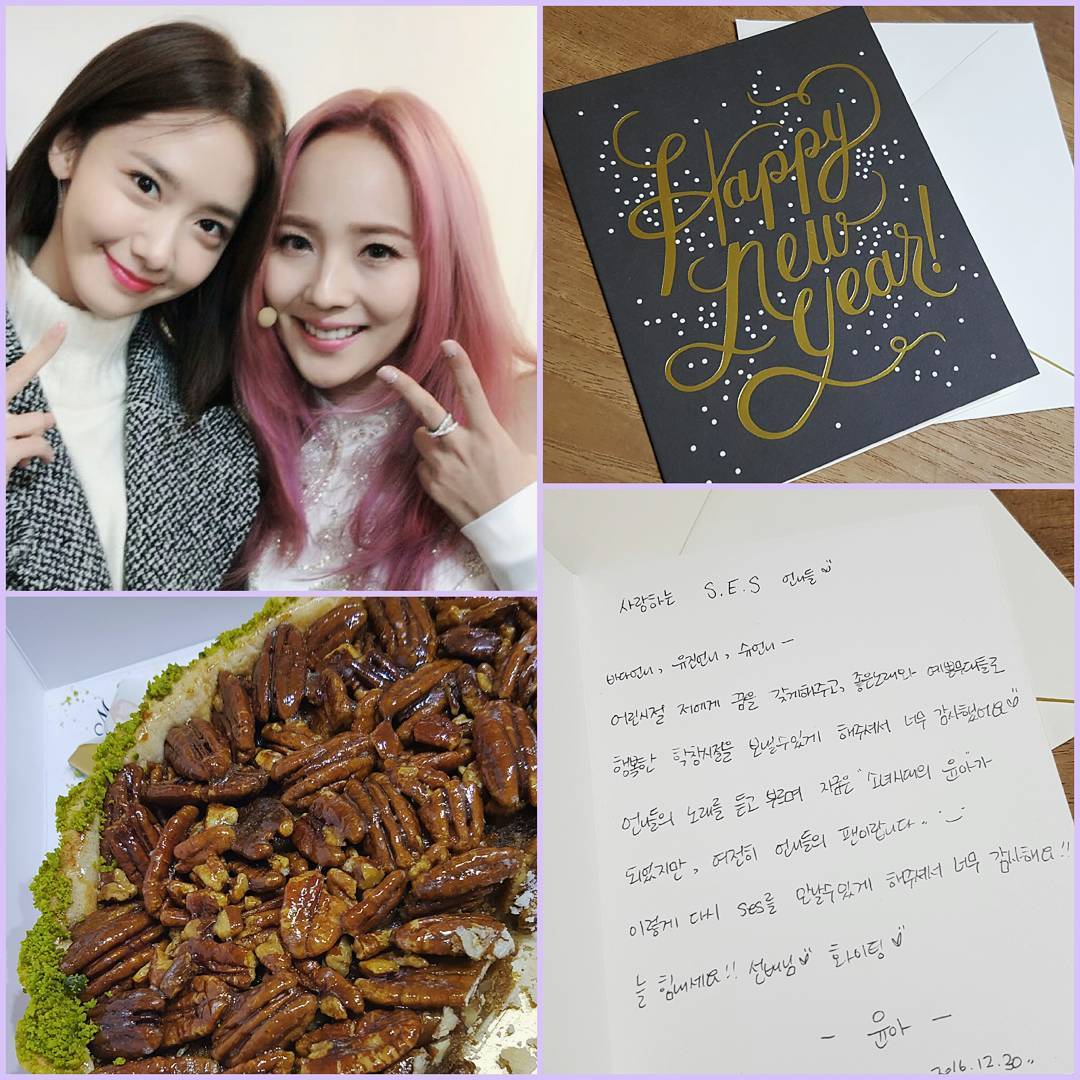 Happy
New
Year!
사랑하는 S.E.S 언니들
바다언니, 유진언니, 슈언니 –
어린시절 저에게 꿈을 갖게해주고, 좋은노래와 예쁜무대들로
행복한 학창시절을 보낼수있게 해주셔서 너무 감사했어요
언니들의 노래를 듣고 부르며 지금은 "소녀시대의 윤아"가
되었지만, 여전히 언니들의 팬이랍니다..
이렇게 다시 ses를 만날수있게 해주셔서 너무 감사해요!!
늘 힘내세요!! 선배님 화이팅
– 윤아 –
2016.12.30..